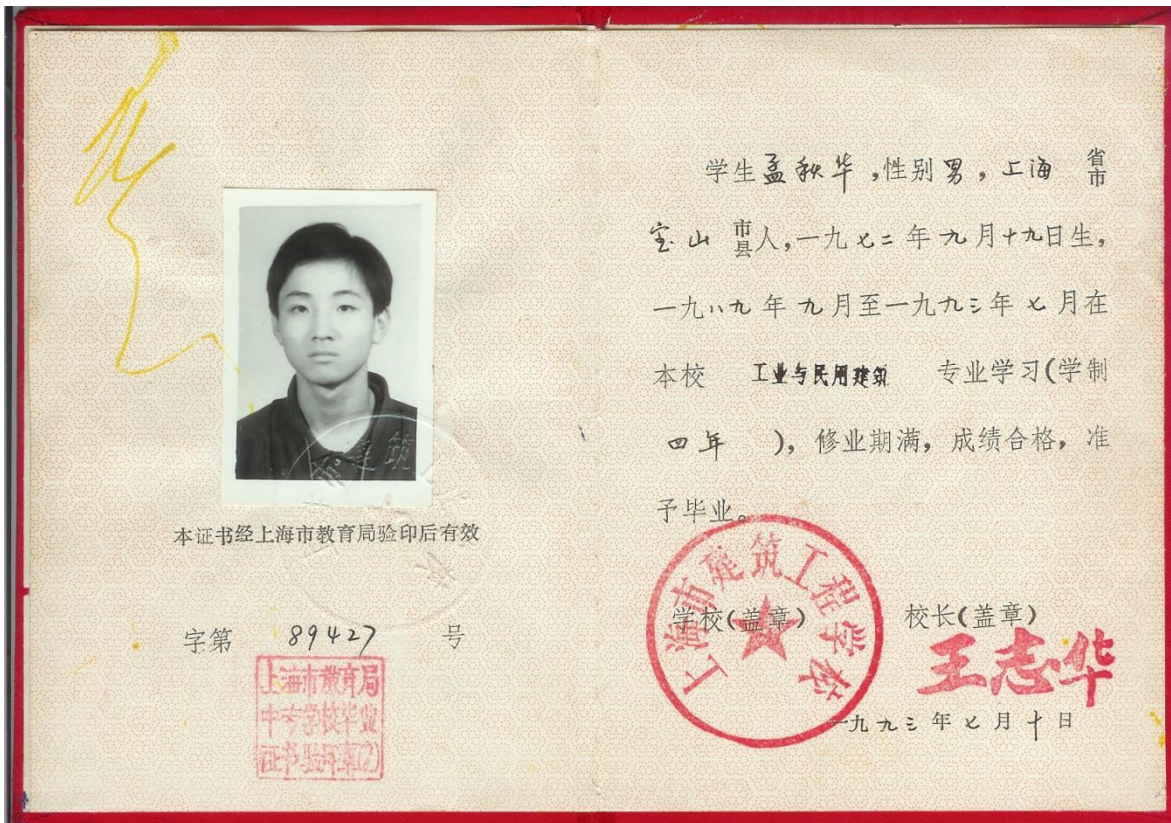 本证书经上海市教育局验印后有效
字第 89427 号
上海市教育局
中专学校毕业
证书验印章(2)
学生孟秋华,性别男,上海 省市
宝山 市县人,一九七二年九月十九日生,
一九八九年九月至一九九三年七月在
本校 工业与民用建筑 专业学习(学制
四年 ),修业期满,成绩合格,准
予毕业。
上海市建筑工程学校
学校(盖章) 校长(盖章)
王志华
一九九三年七月十日